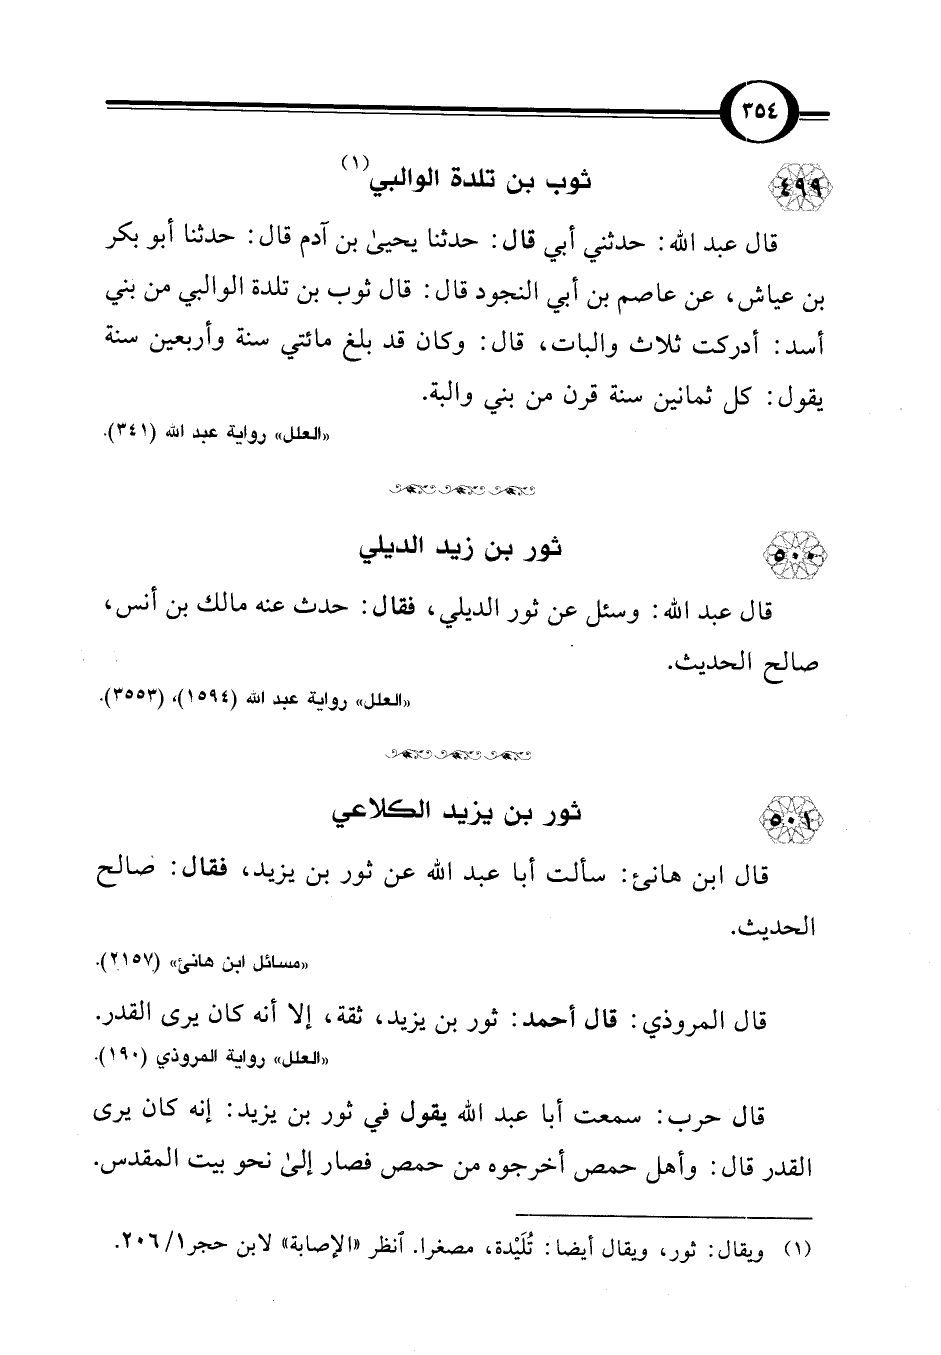 ٣٥٤
٤٩٩ ثوب بن تلدة الوالبي(١)
قال عبد الله: حدثني أبي قال: حدثنا يحيىٰ بن آدم قال: حدثنا أبو بكر
بن عياش، عن عاصم بن أبي النجود قال: قال ثوب بن تلدة الوالبي من بني
أسد: أدركت ثلاث والبات، قال: وكان قد بلغ مائتي سنة وأربعين سنة
يقول: كل ثمانين سنة قرن من بني والبة.
«العلل» رواية عبد الله (٣٤١).
٥٠٠ ثور بن زيد الديلي
قال عبد الله: وسئل عن ثور الديلي، فقال: حدث عنه مالك بن أنس،
صالح الحديث.
«العلل» رواية عبد الله (١٥٩٤)، (٣٥٥٣).
٥٠١ ثور بن يزيد الكلاعي
قال ابن هانئ: سألت أبا عبد الله عن ثور بن يزيد، فقال: صالح
الحديث.
«مسائل ابن هانئ» (٢١٥٧).
قال المروذي: قال أحمد: ثور بن يزيد، ثقة، إلا أنه كان يرى القدر.
«العلل» رواية المروذي (١٩٠).
قال حرب: سمعت أبا عبد الله يقول في ثور بن يزيد: إنه كان يرى
القدر قال: وأهل حمص أخرجوه من حمص فصار إلىٰ نحو بيت المقدس.
(١) ويقال: ثور، ويقال أيضا: تُلَيْدة، مصغرا. ٱنظر «الإصابة» لابن حجر ١/ ٢٠٦.